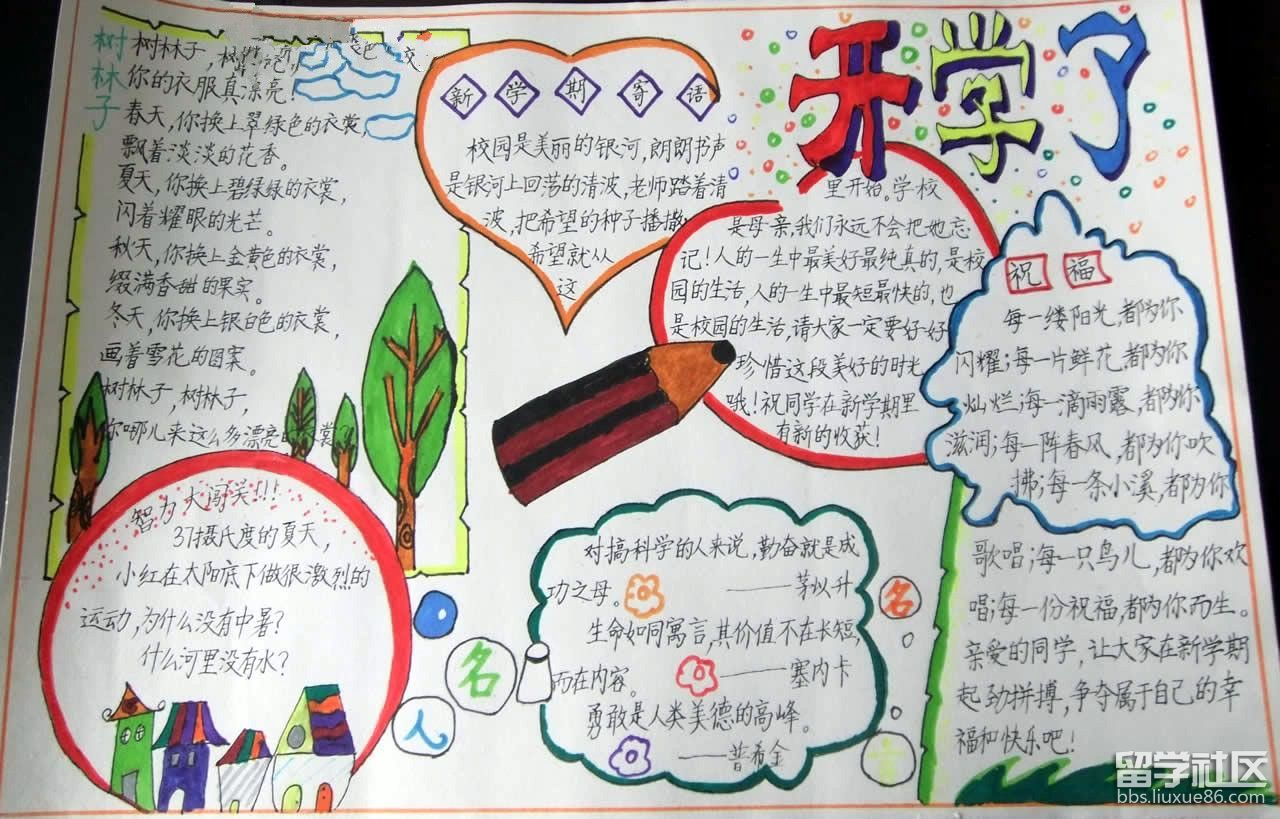 开学了
树林子
树林子,树
你的衣服真漂亮!
春天,你换上翠绿色的衣裳,
飘着淡淡的花香。
夏天,你换上碧绿绿的衣裳,
闪着耀眼的光芒。
秋天,你换上金黄色的衣裳,
缀满香甜的果实。
冬天,你换上银白色的衣裳,
画着雪花的图案。
树林子,树林子,
你哪儿来这么多漂亮的衣裳?
新学期寄语
校园是美丽的银河,朗朗书声
是银河上回荡的清波,老师踏着清
波,把希望的种子播撒
希望就从
这
里开始。学校
是母亲,我们永远不会把她忘
记!人的一生中最美好最纯真的,是校
园的生活,人的一生中最短最快的,也
是校园的生活,请大家一定要好好
珍惜这段美好的时光
哦!祝同学在新学期里
有新的收获!
祝福
每一缕阳光,都为你
闪耀;每一片鲜花,都为你
灿烂;每一滴雨露,都为你
滋润;每一阵春风,都为你吹
拂;每一条小溪,都为你
歌唱;每一只鸟儿,都为你欢
唱;每一份祝福,都为你而生。
亲爱的同学,让大家在新学期
起劲拼搏,争夺属于自己的幸
福和快乐吧!
智力大闯关!!!
37摄氏度的夏天,
小红在太阳底下做很激烈的
运动,为什么没有中暑?
什么河里没有水?
名人
名言
对搞科学的人来说,勤奋就是成
功之母。
——茅以升
生命如同寓言,其价值不在长短,
而在内容。
——塞内卡
勇敢是人类美德的高峰。
——普希金
留学社区
bbs.liuxue86.com